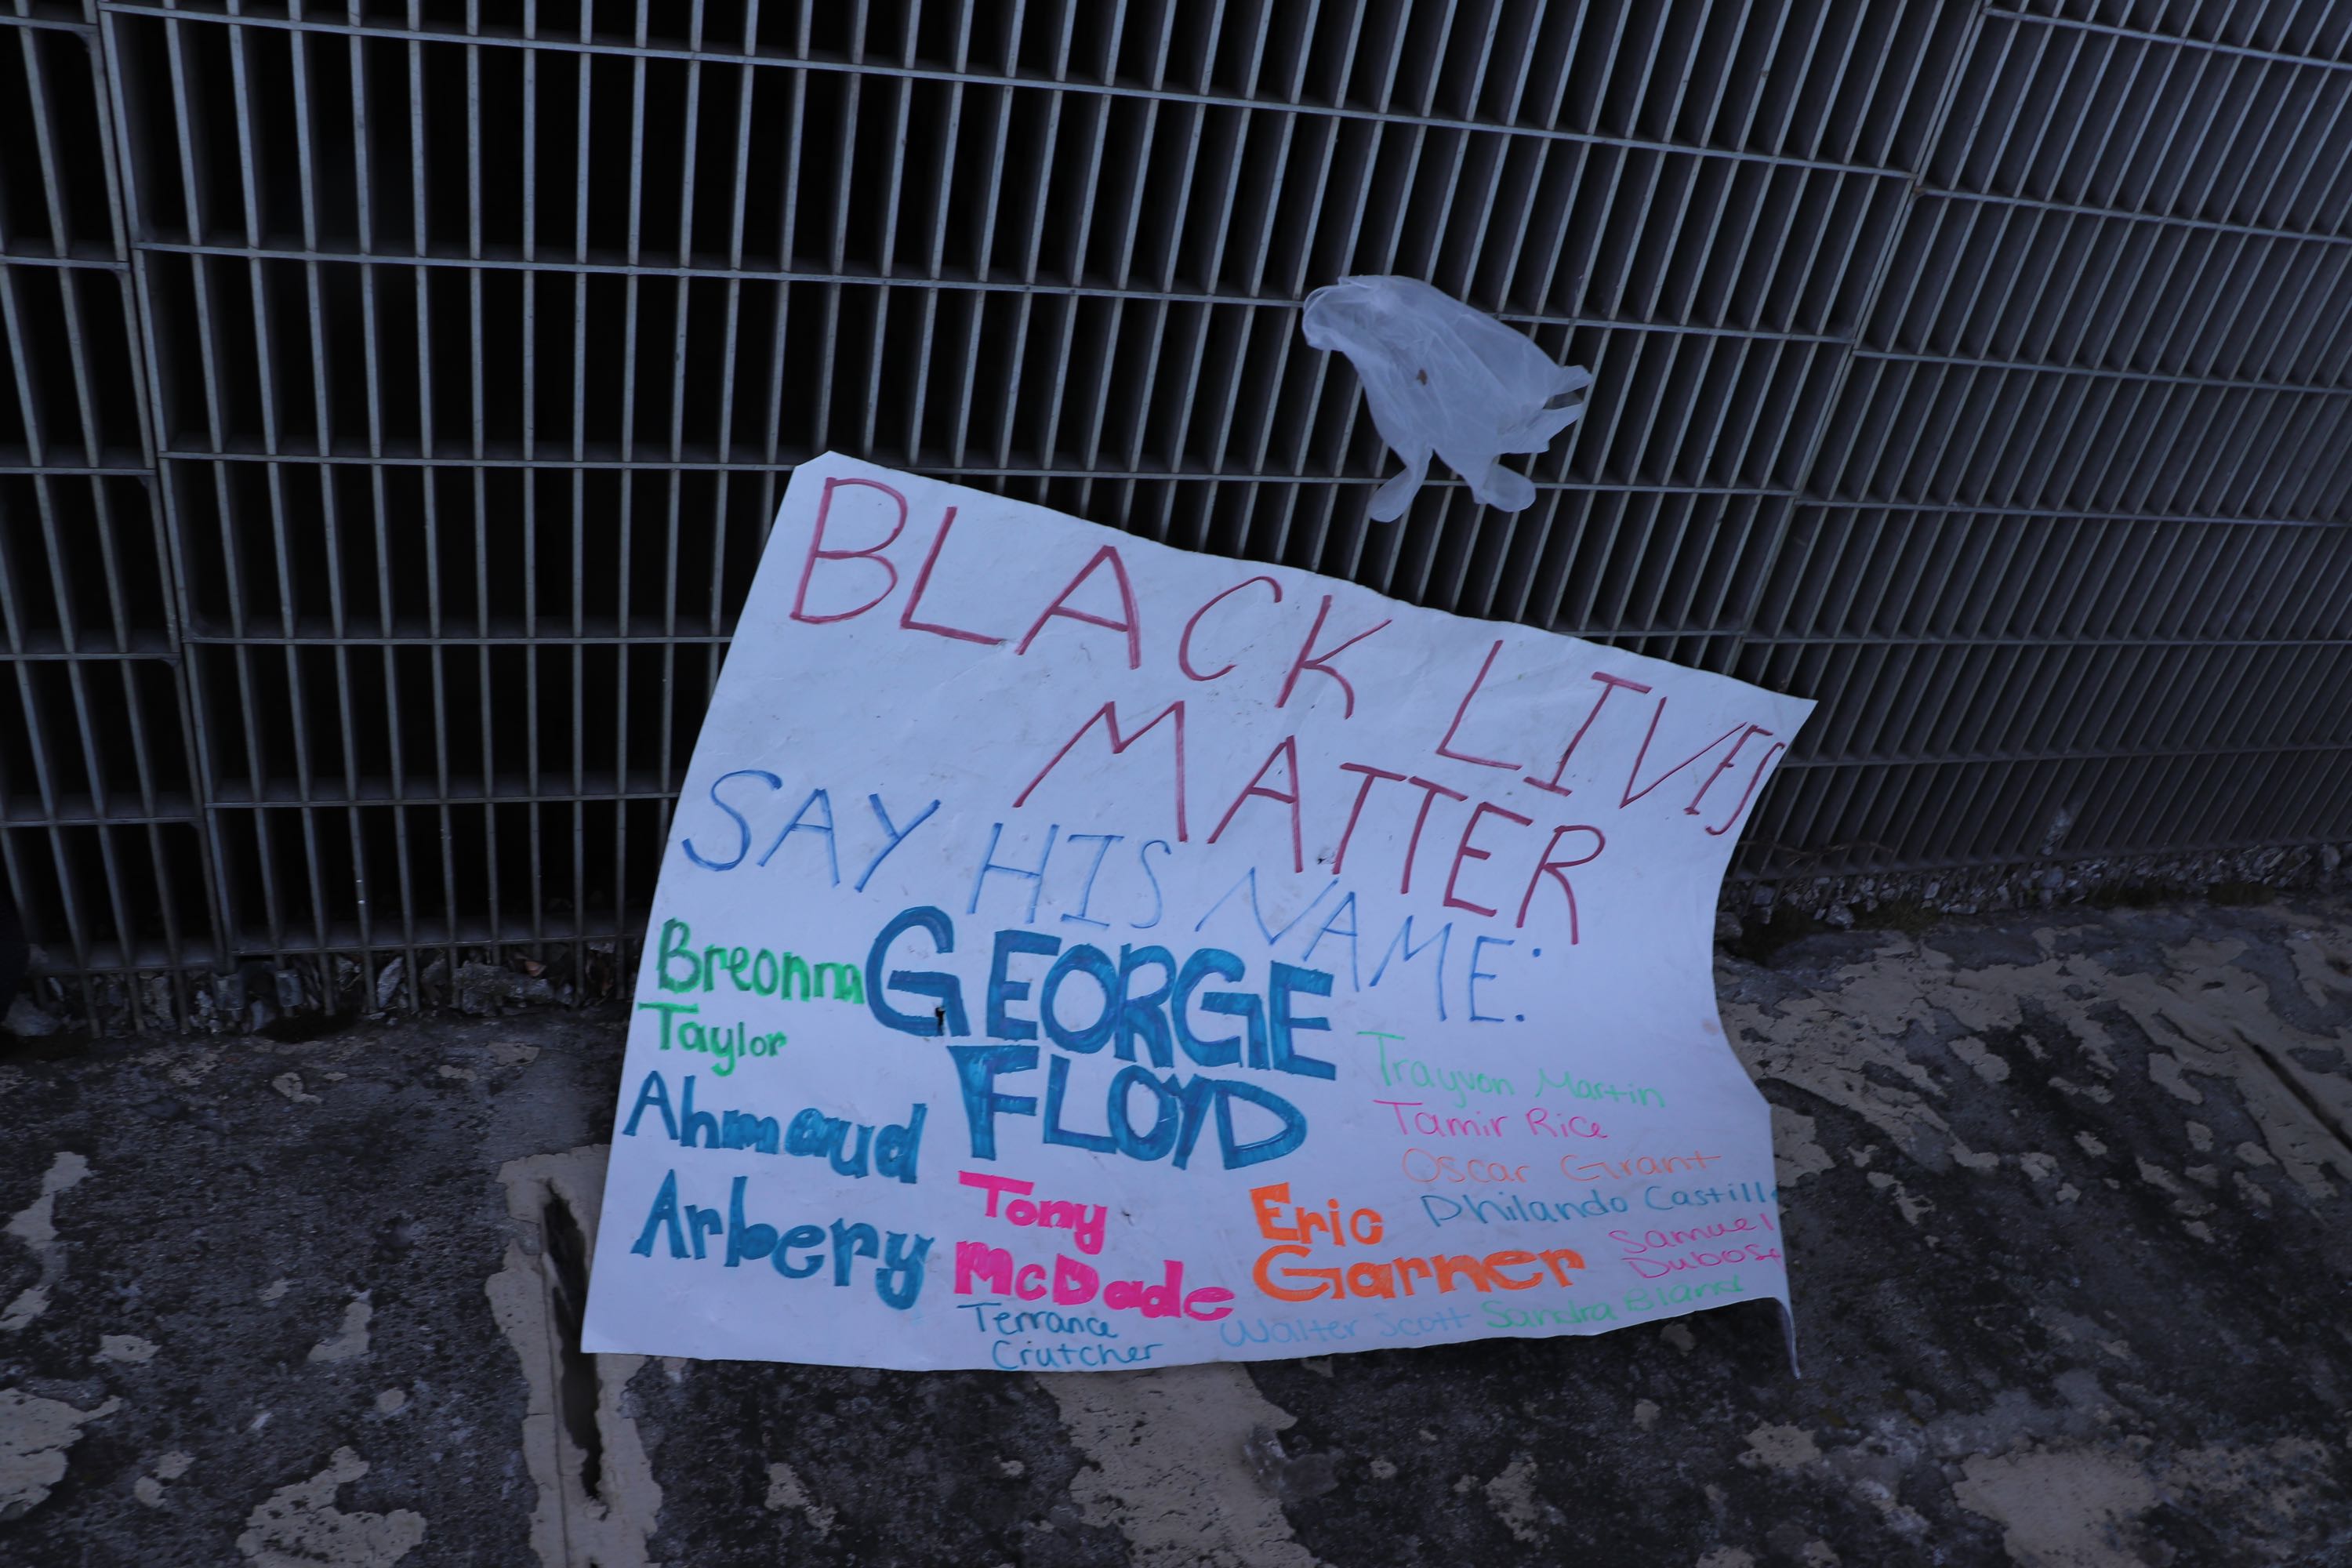 BLACK LIVES
MATTER
SAY HIS NAME:
GEORGE
FLOYD
Breonna
Taylor
Ahmaud
Arbery
Tony
McDade
Eric
Garner
Trayvon Martin
Tamir Rice
Oscar Grant
Philando Castille
Samuel
Dubose
Terrance
Crutcher
Walter Scott
Sandra Bland